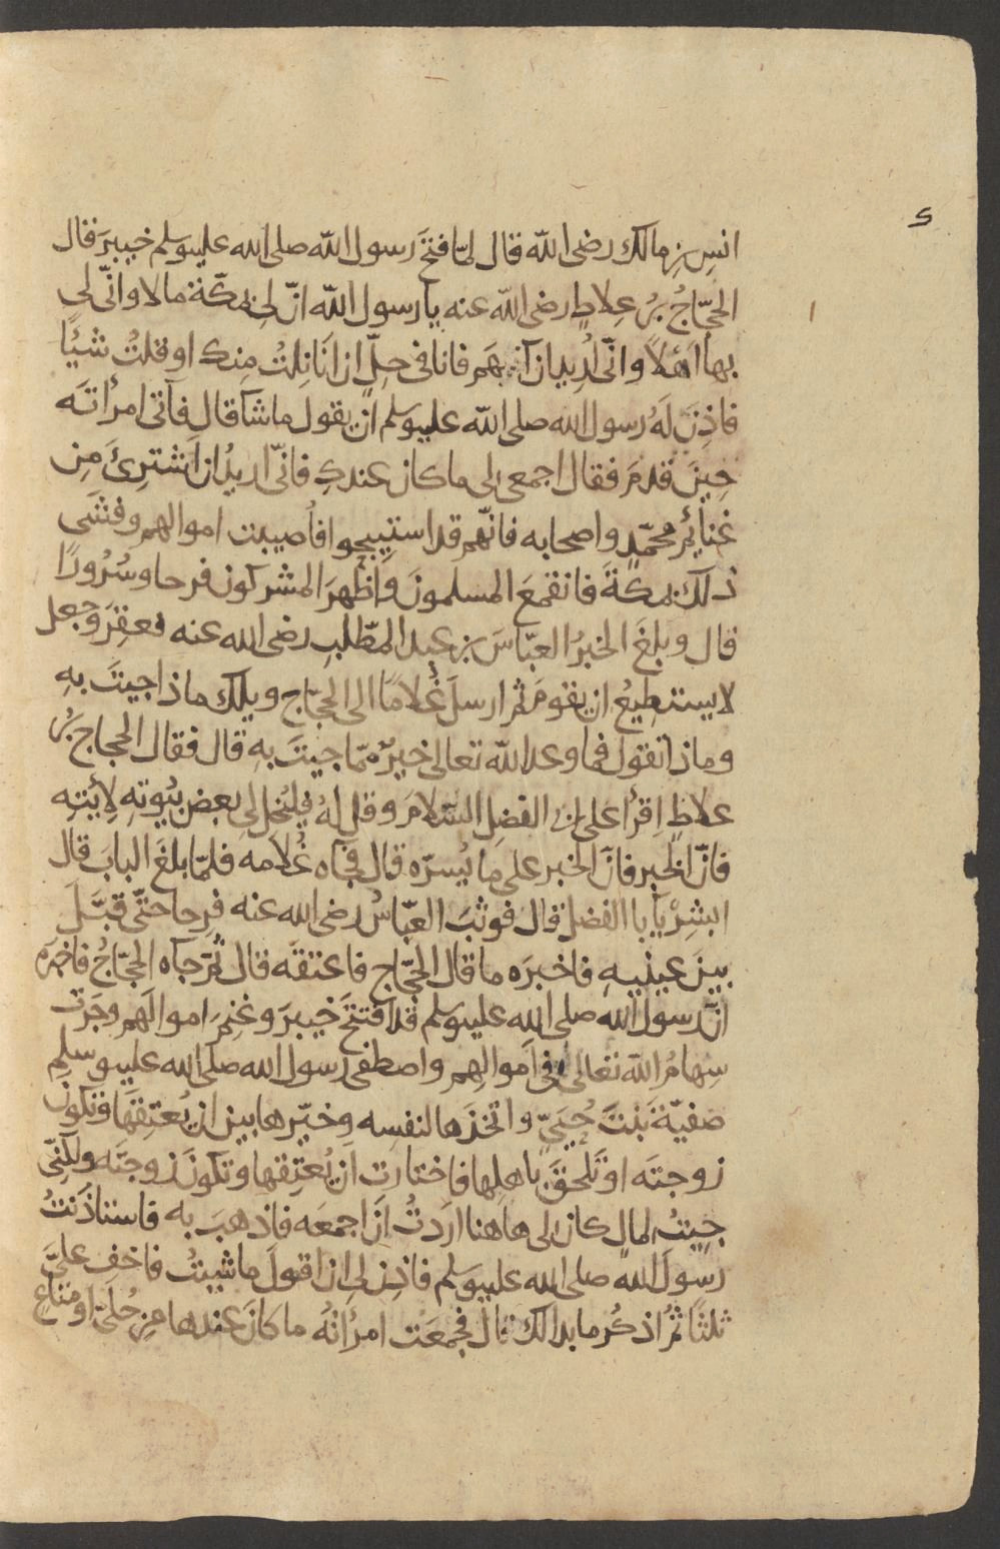 انسِ بنِ مالك رضى الله قال لمّا فتحَ رسول الله صلى الله عليه وسلم خيبرَ قال
الحجّاجُ بنُ عِلاطٍ رضى الله عنه يا رسول الله انّ لى بمكّة مالا وانّى لى
بها اهلاً وانّى اُريد ان آتيهَم فانا فى حلٍّ ان انا نِلتُ منك او قلتُ شيًا
فاذِنَ لَهُ رسول الله صلى الله عليه وسلم ان يقول ما شآ قال فآتى امرأتَه
حِينَ قدمَ فقال اجمعى لى ما كان عندكِ فانّى اريدُ ان اَشترِىَ مِن
غنايِم محمّدٍ واصحابه فانّهم قد استبيحوا فاُصيبت اموالهم وفشى
ذلك بمكّةَ فانقمعَ المسلمونَ واَظهرَ المشركون فرحا وسُرُورًا
قال وبلغَ الخبرُ العبّاسَ بن عبد المطّلبِ رضى الله عنه فعقِرَ وجعل
لا يستطيعُ ان يقومَ ثم ارسلَ غُلامًا الى الحجاج ويلك ماذا جيتَ بهِ
وماذا تقول فما وعد الله تعالى خيرٌ ممّا جيتَ بهِ قال فقال الحجاج بنُ
علاطٍ اِقرأ على ابى الفضلِ السّلامَ وقل لهُ فليُخلِ لى بعض بيُوتهِ لِأيتِه
فانّ الخبر فانّ الخبر على ما يُسرّه قال فجاه غُلامه فلمّا بلغَ البابَ قال
ابشِرْ يا با الفضل قال فوثبَ العبّاسُ رضى الله عنه فرِحا حتّى قبّلَ
بينَ عينيهِ فاخبرَه ما قال الحجّاج فاعتقَه قال ثُمّ جآه الحجّاجُ فاخبرَه
انّ رسول الله صلى الله عليه وسلم قد افتتحَ خيبرَ وغنِمَ اموالَهم وجَرَت
سِهامُ الله تعالى فى اَموالِهم واصطفى رسول الله صلى الله عليه وسلم
صَفيّةَ بنتَ حُيَىّ واتخذَها لنفسه وخيّرها بين ان يُعتِقَها وتكونَ
زوجتَه او تَلحقَ باهلِها فاختارت ان يُعتِقها وتكونَ زوجتَه ولكنّى
جِيتُ لمالٍ كان لى هاهنا اردتُ ان اجمعَه فاذهبَ به فاستاذَنتُ
رسولَ الله صلى الله عليه وسلم فاذِن لى ان اقولَ ما شيتُ فاخفِ علىَّ
ثلثًا ثمُ اذكُر ما بدا لك قال فجمعَت امرأتُه ما كانَ عندها مِن حُلىّ او متاعٍ